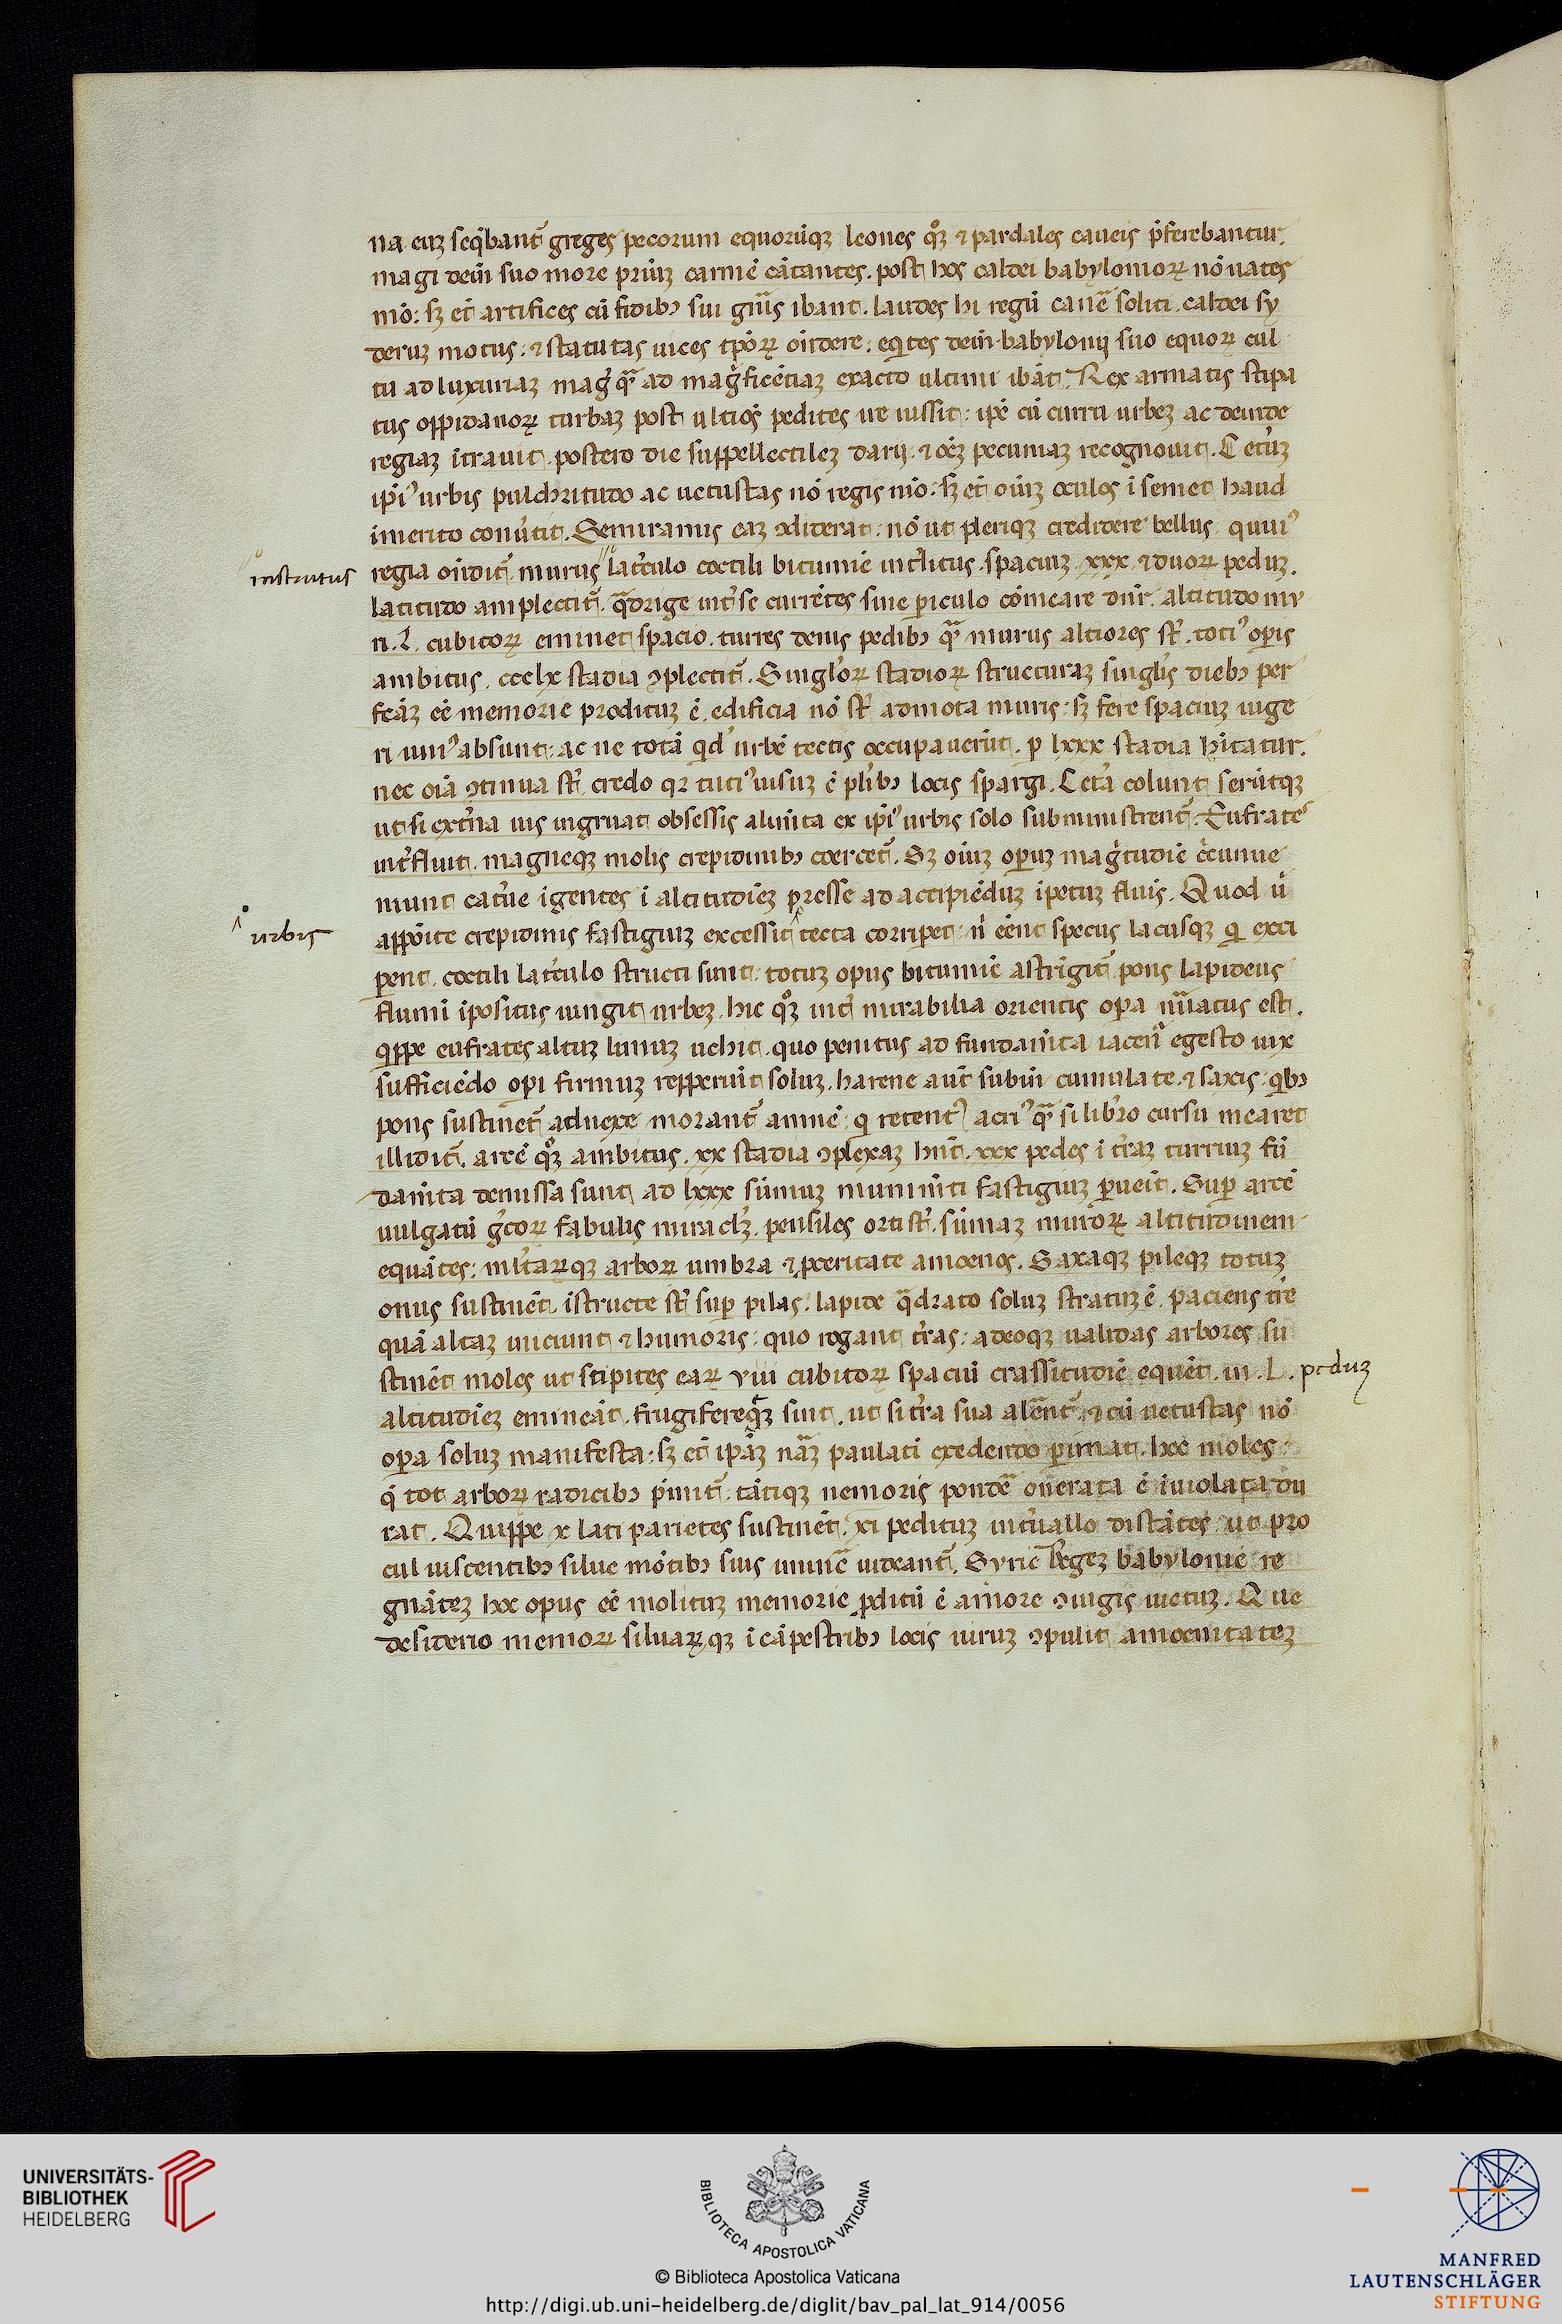 na eiꝫ seqͥbantˀ greges pecorum equorūqꝫ leones qͦꝫ ⁊ pardales caueis p̄ferebantur.
magi dein̄ suo more priuꝫ carmē cātantes. post hos caldei babylonioꝝ nō uates
mō: sꝫ et̄ artifices cū fidibꝰ sui gn̄is ibant. laudes hi regū canē soliti. caldei sy
deruꝫ motus: ⁊ statutas uices tp̄oꝝ on̄dere: eqͥtes dein̄ babylonij suo equoꝝ cul
tu ad luxuriaꝫ magͥ qᷓ ad magͥficētiaꝫ exacto ultimi ibāt. Rex armatis stipa
tus oppidanoꝝ turbaꝫ post ultīos pedites ire iussit: ip̄e cū curru urbeꝫ ac deinde
regiaꝫ ītrauit. postero die suppellectileꝫ darij. ⁊ oēꝫ pecuniaꝫ recognouit. Cetūꝫ
ip̄iꝰ urbis pulchritudo ac uetustas nō regis mō: sꝫ et̄ oiūꝫ oculos ī semet haud
īmerito conūtit. Semiramis eaꝫ ꝯdiderat: nō ut pleriqꝫ credidere bellus. cuiuꝰ
regia on̄ditˀ. murus lat̄culo coctili bitumīe int̄litus. spaciuꝫ. xxx. ⁊ duoꝝ peduꝫ.
instructus
latitudo amplectitˀ. qᷓdrige int̄ se currētes sine periculo cōmeare dn̄r. altitudo mu
ri. L. cubitoꝝ eminet spacio. turres denis pedibꝰ qᷓ murus altiores st̄. totiꝰ operis
ambitus. ccclx stadia ꝯplectitˀ. Singloꝝ stadioꝝ structuraꝫ singlis diebꝰ per
fcāꝫ eē memorie proditꝫ ē. edificia nō st̄ admota muris: sꝫ fere spaciuꝫ iuge
ri uniꝰ absunt: ac ne totā qͥd' urbē tectis occupauerūt. p lxxx stadia hītatur.
nec oīa ꝯtinua st̄. credo qꝛ tutiꝰ uisuꝫ ē plībꝰ locis spargi. Cetā colunt serūtqꝫ
ut si ext̄na uis ingruat obsessis alimn̄ta ex ip̄iꝰ urbis solo subministrentˀ. Eufrates
int̄fluit. magneqꝫ molis crepidinibꝰ coercetˀ. Sꝫ oiūꝫ operuꝫ magͥtudīe circumue
niunt cat̄ne īgentes ī altitudīeꝫ presse ad accipiēduꝫ īpetuꝫ fluīs. Quod ū
appoīte crepidinis fastigiuꝫ excessit tecta corriperet: nͥ eēnt specus lacusqꝫ qͥ exci
urbis
perent. coctili lat̄culo structi sunt: totuꝫ opus bitumīe astrīgitˀ pons lapideus
flumī īpositus iungit urbeꝫ. hic qͦꝫ int̄ mirabilia orientis opera nūatus est.
qͥppe eufrates altuꝫ limuꝫ uehit. quo penitus ad fundamīta iaciē̄da egesto uix
sufficiēdo operi firmuꝫ repperiūt soluꝫ. harene aut̄ subin̄ cumulate. ⁊ saxis. qͥbꝰ
pons sustinetˀ adnexe morantˀ amnē: qͥ retentꝰ acriꝰ qᷓ si libero cursu mearet
illiditˀ. arcē qͦꝫ ambitus. xx stadia ꝯplexaꝫ hn̄t. xxx pedes ī t̄raꝫ turriuꝫ fū
damīta demissa sunt. ad lxxx sūmuꝫ munimīti fastigiuꝫ peruēit. Super arcē
uulgatū grecoꝝ fabulis miraclꝫ. pensiles orti st̄. sūmaꝫ muroꝝ altitudinem
equātes: mltaꝝqꝫ arboꝝ umbra ⁊ proceritate amoenos. Saxaqꝫ pileqꝫ totuꝫ
onus sustinēt. īstructe st̄ super pilas. lapide qᷓdrato soluꝫ stratuꝫ ē. paciens t̄re
quā altaꝫ iniciunt ⁊ humoris: quo rigant t̄ras: adeoqꝫ ualidas arbores su
stinēt moles ut stipites eaꝝ viii cubitoꝝ spaciū crassitudīe equēt. in. L. peduꝫ
altitudīeꝫ emineāt. frugifereqꝫ sint. ut si t̄ra sua alerentˀ. ⁊ cū uetustas nō
opera soluꝫ manifesta: sꝫ et̄ ipāꝫ nāꝫ paulatī exedendo perimat. hec moles
q̄ tot arboꝝ radicibꝰ p̄mitˀ: tātiqꝫ nemoris ponde onerata ē īuiolata du
rat. Quippe x lati parietes sustinēt. xi pedituꝫ int̄uallo distātes. ut pro
cul uisentibꝰ silue mōtibꝰ suis iminē̄ uideantˀ. Syrie Regeꝫ babylonie re
gnāteꝫ hoc opus eē molituꝫ memorie proditū ē amore ꝯiugis uictuꝫ. Que
desiderio nemoꝝ siluaꝝqꝫ ī cāpestribꝰ locis uiruꝫ ꝯpulit amoenitateꝫ
UNIVERSITÄTS-
BIBLIOTHEK
HEIDELBERG
BIBLIOTECA APOSTOLICA VATICANA
© Biblioteca Apostolica Vaticana
http://digi.ub.uni-heidelberg.de/diglit/bav_pal_lat_914/0056
MANFRED
LAUTENSCHLÄGER
STIFTUNG